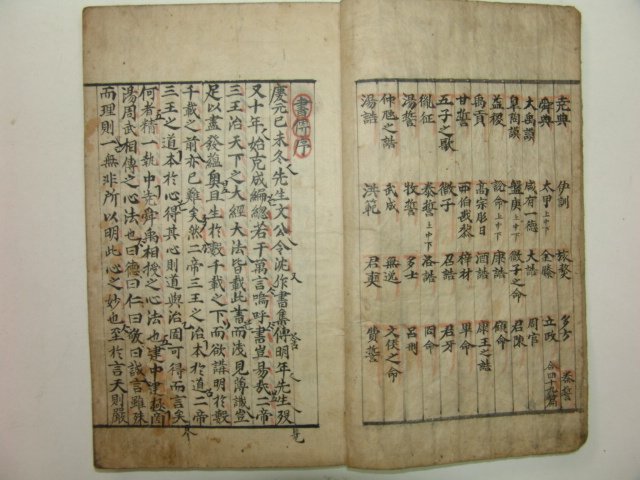 堯典 伊訓 旅獒 多方 秦誓
舜典 太甲上中下 金縢 立政 合四十九篇
大禹謨 咸有一德 大誥 周官
皐陶謨 盤庚上中下 微子之命 君陳
益稷 說命上中下 康誥 顧命
禹貢 高宗肜日 酒誥 康王之誥
甘誓 西伯戡黎 梓材 畢命
五子之歌 微子 召誥 君牙
胤征 泰誓上中下 洛誥 冏命
湯誓 牧誓 多士 呂刑
仲虺之誥 武成 無逸 文侯之命
湯誥 洪範 君奭 費誓
書傳序
慶元己未冬先生文公令沈作書集傳明年先生歿
又十年始克成編總若干萬言嗚呼書豈易言哉二帝
三王治天下之大經大法皆載此書而淺見薄識豈
足以盡發蘊奧且生於數千載之下而欲講明於數
千載之前亦已難矣然二帝三王之治本於道二帝
三王之道本於心得其心則道與治固可得而言矣
何者精一執中堯舜禹相授之心法也建中建極商
湯周武相傳之心法也曰德曰仁曰敬曰誠言雖殊
而理則一無非所以明此心之妙也至於言天則嚴